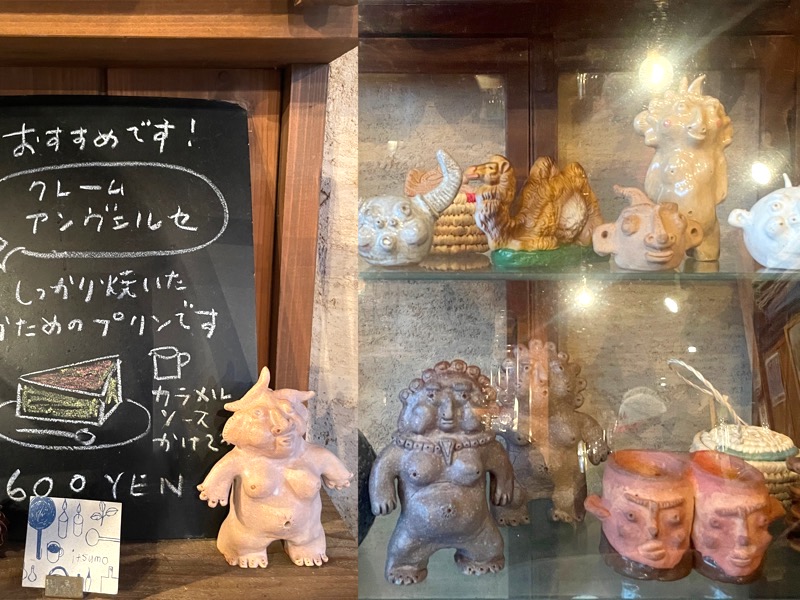 おすすめです!
クレーム
アンヴェルセ
しっかり焼いた
かためのプリンです
カラメル
ソース
かけて
600 YEN
itsumo